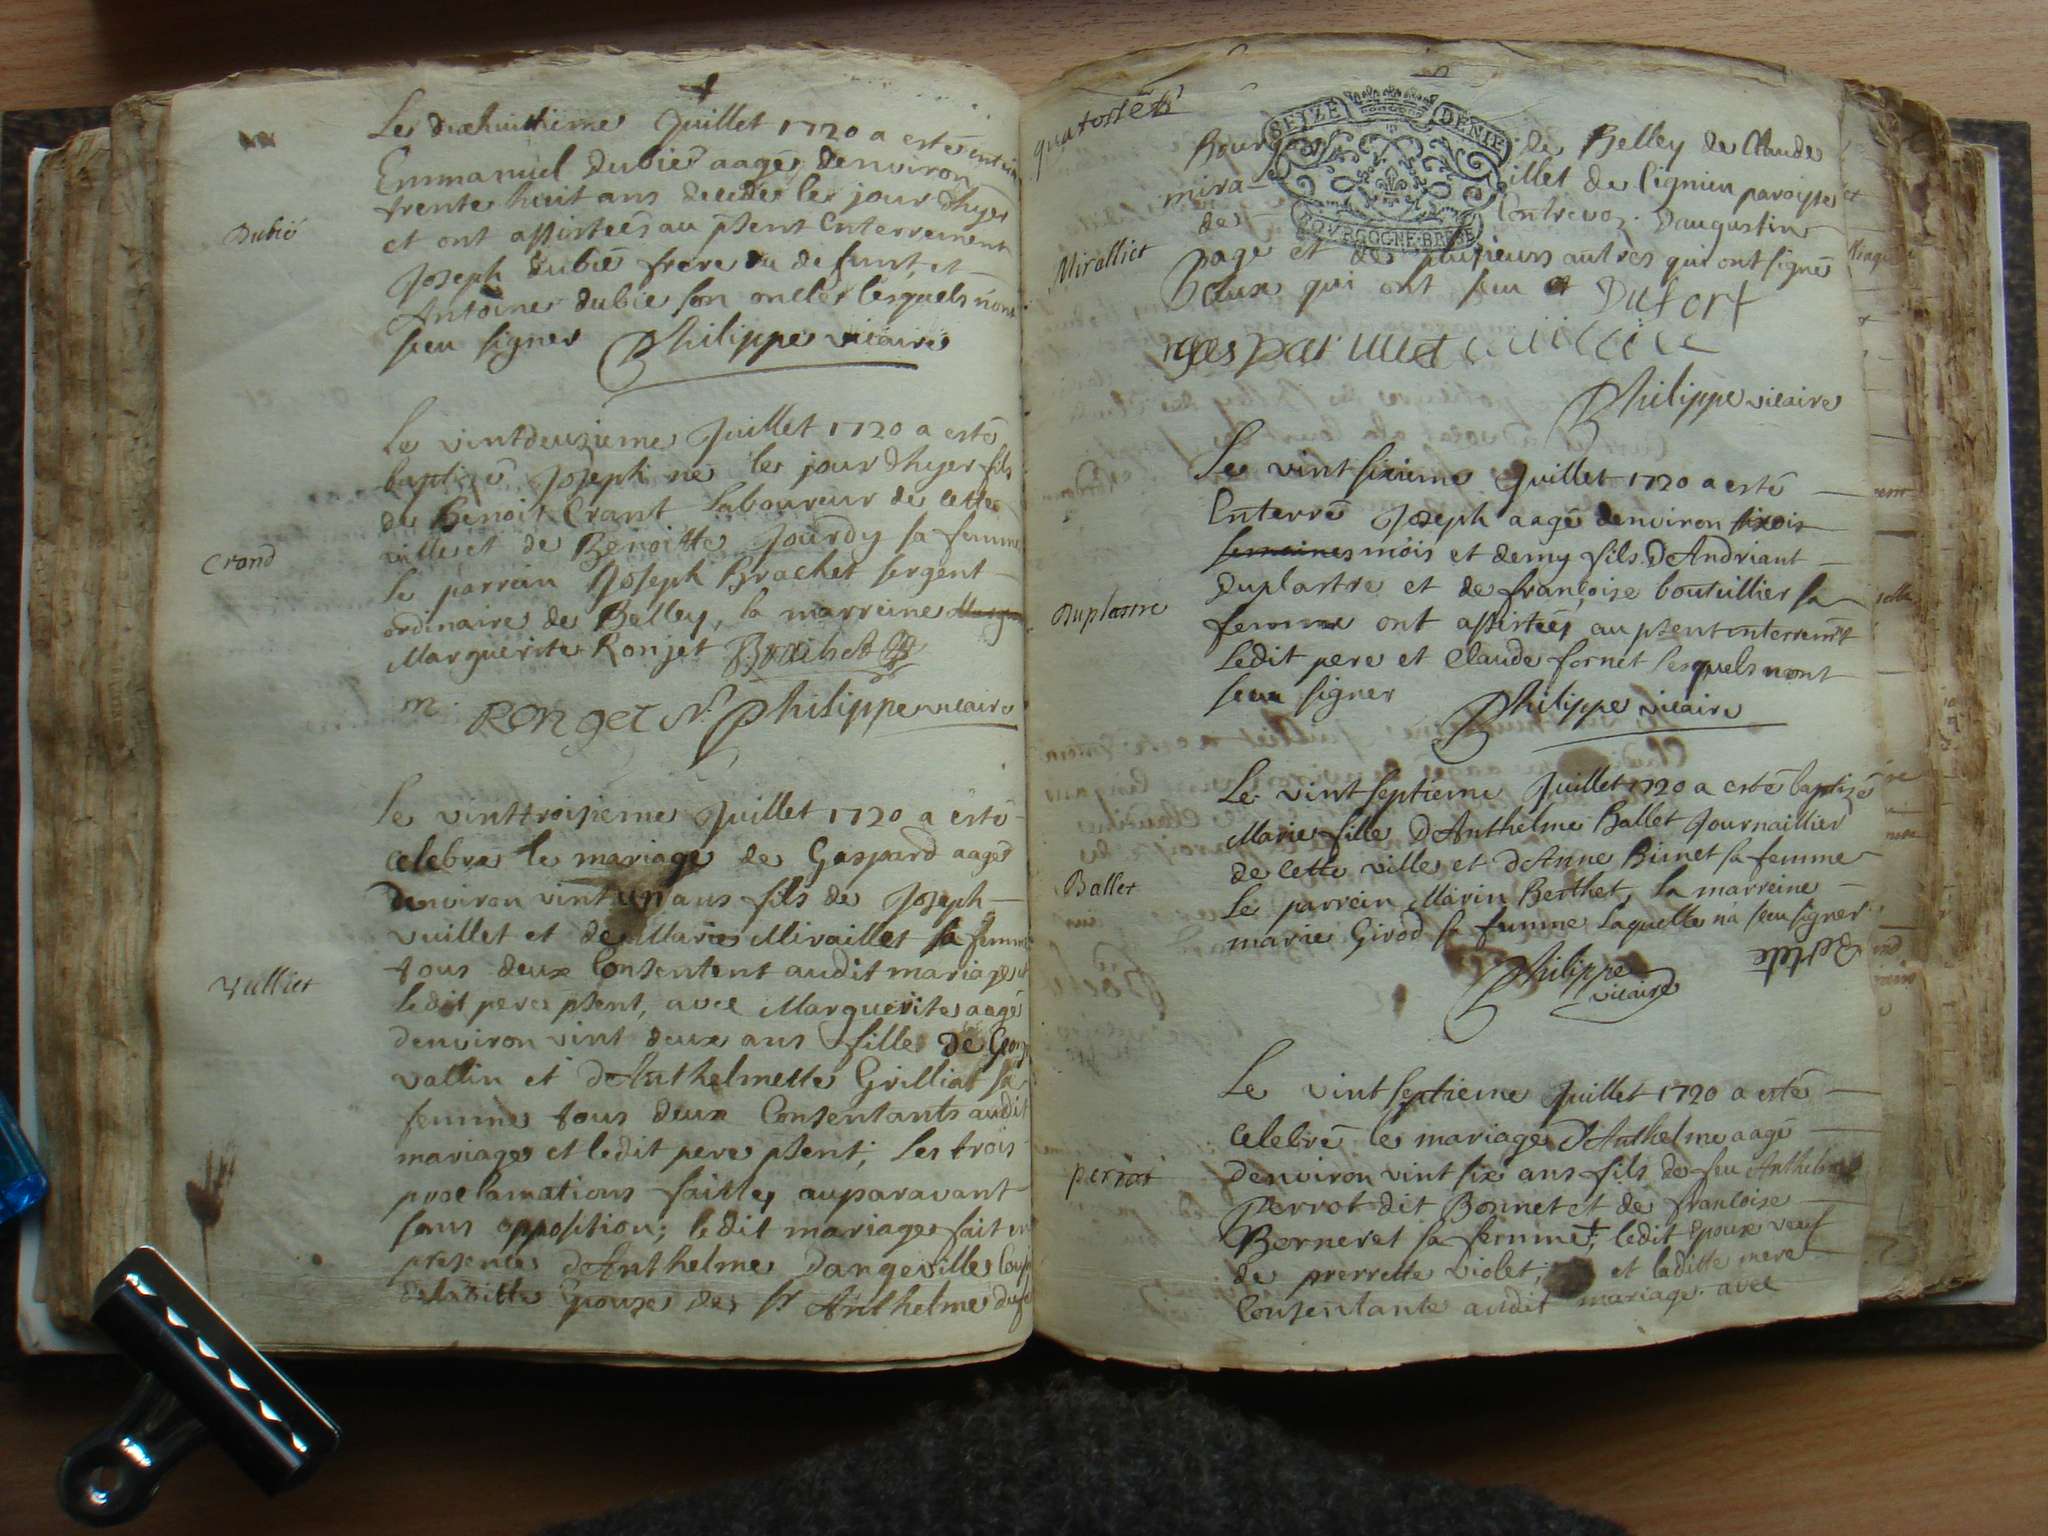 Le dixhuitieme Juillet 1720 a esté
Emmanuel Dubié aagé denviron
trente huit ans decedé le jour dhyer
et ont assistées au psent Enterrement
Dubié
Joseph Dubié frere du defunt, et
Antoine dubie son oncle lesquels n'ont
sceu signer Philippe vicaire
Le vintdeuzieme Juillet 1720 a esté
baptizé Joseph né le jour dhyer fils
de Benoit Crant Laboureur de cette
ville et de Benoitte Jourdy sa femme
Crand
Le parrein Joseph Brachet sergent
ordinaire de Belley, la marreine
Marguerite Ronjet Brachet
m. Ronget Philippe vicaire
Le vinttroisieme Juillet 1720 a esté
celebre le mariage de Gaspard aagé
denviron vint un ans fils de Joseph
vuillet et de Marie Miraillet sa femme
tous deux Consentent audit mariage et
Vulliet
ledit pere psent, avec Marguerite aagé
denviron vint deux ans fille de
vallin et dAnthelmette Grilliat sa
femme tous deux Consentants audit
mariage et ledit pere psent; Les trois
proclamations faittes auparavant
sans opposition; ledit mariage fait en
presence dAnthelme Dangeville
Epouse de sr Anthelme
de Belley de Claude
SEIZE DENIE
mira-
illet de Cignieu paroisse
de Contrevoz. Daugustin
BOURGOGNE BRESSE
Miralliet
page et de plusieurs autres qui ont signé
ceux qui ont sceu Dufort
Philippe vicaire
Le vint sixieme Juillet 1720 a esté
Enterré Joseph aagé denviron
semaines mois et demy fils DAndriant
Duplastre et de francoise bouteillier sa
Duplastre
femme ont assistées au psent enterremt
Ledit pere et Claude fornet lesquels nont
sceu signer Philippe vicaire
Le vint septieme Juillet 1720 a esté baptizé
Marie fille DAnthelme Ballet Journaillier
de cette ville et dAnne Bimet sa femme
Ballet
Le parrein Marin Berthet, la marreine
marie Girod sa femme laquelle n'a sceu signer
Philippe
vicaire
Le vint septieme Juillet 1720 a esté
celebré le mariage dAnthelme aagé
denviron vint six ans fils de feu Anthelme
perrot
Perrot dit Bonnet et de francoise
Berneret sa femme, ledit Epoux veuf
de pierrette violet, et laditte mere
Consentante audit mariage avec